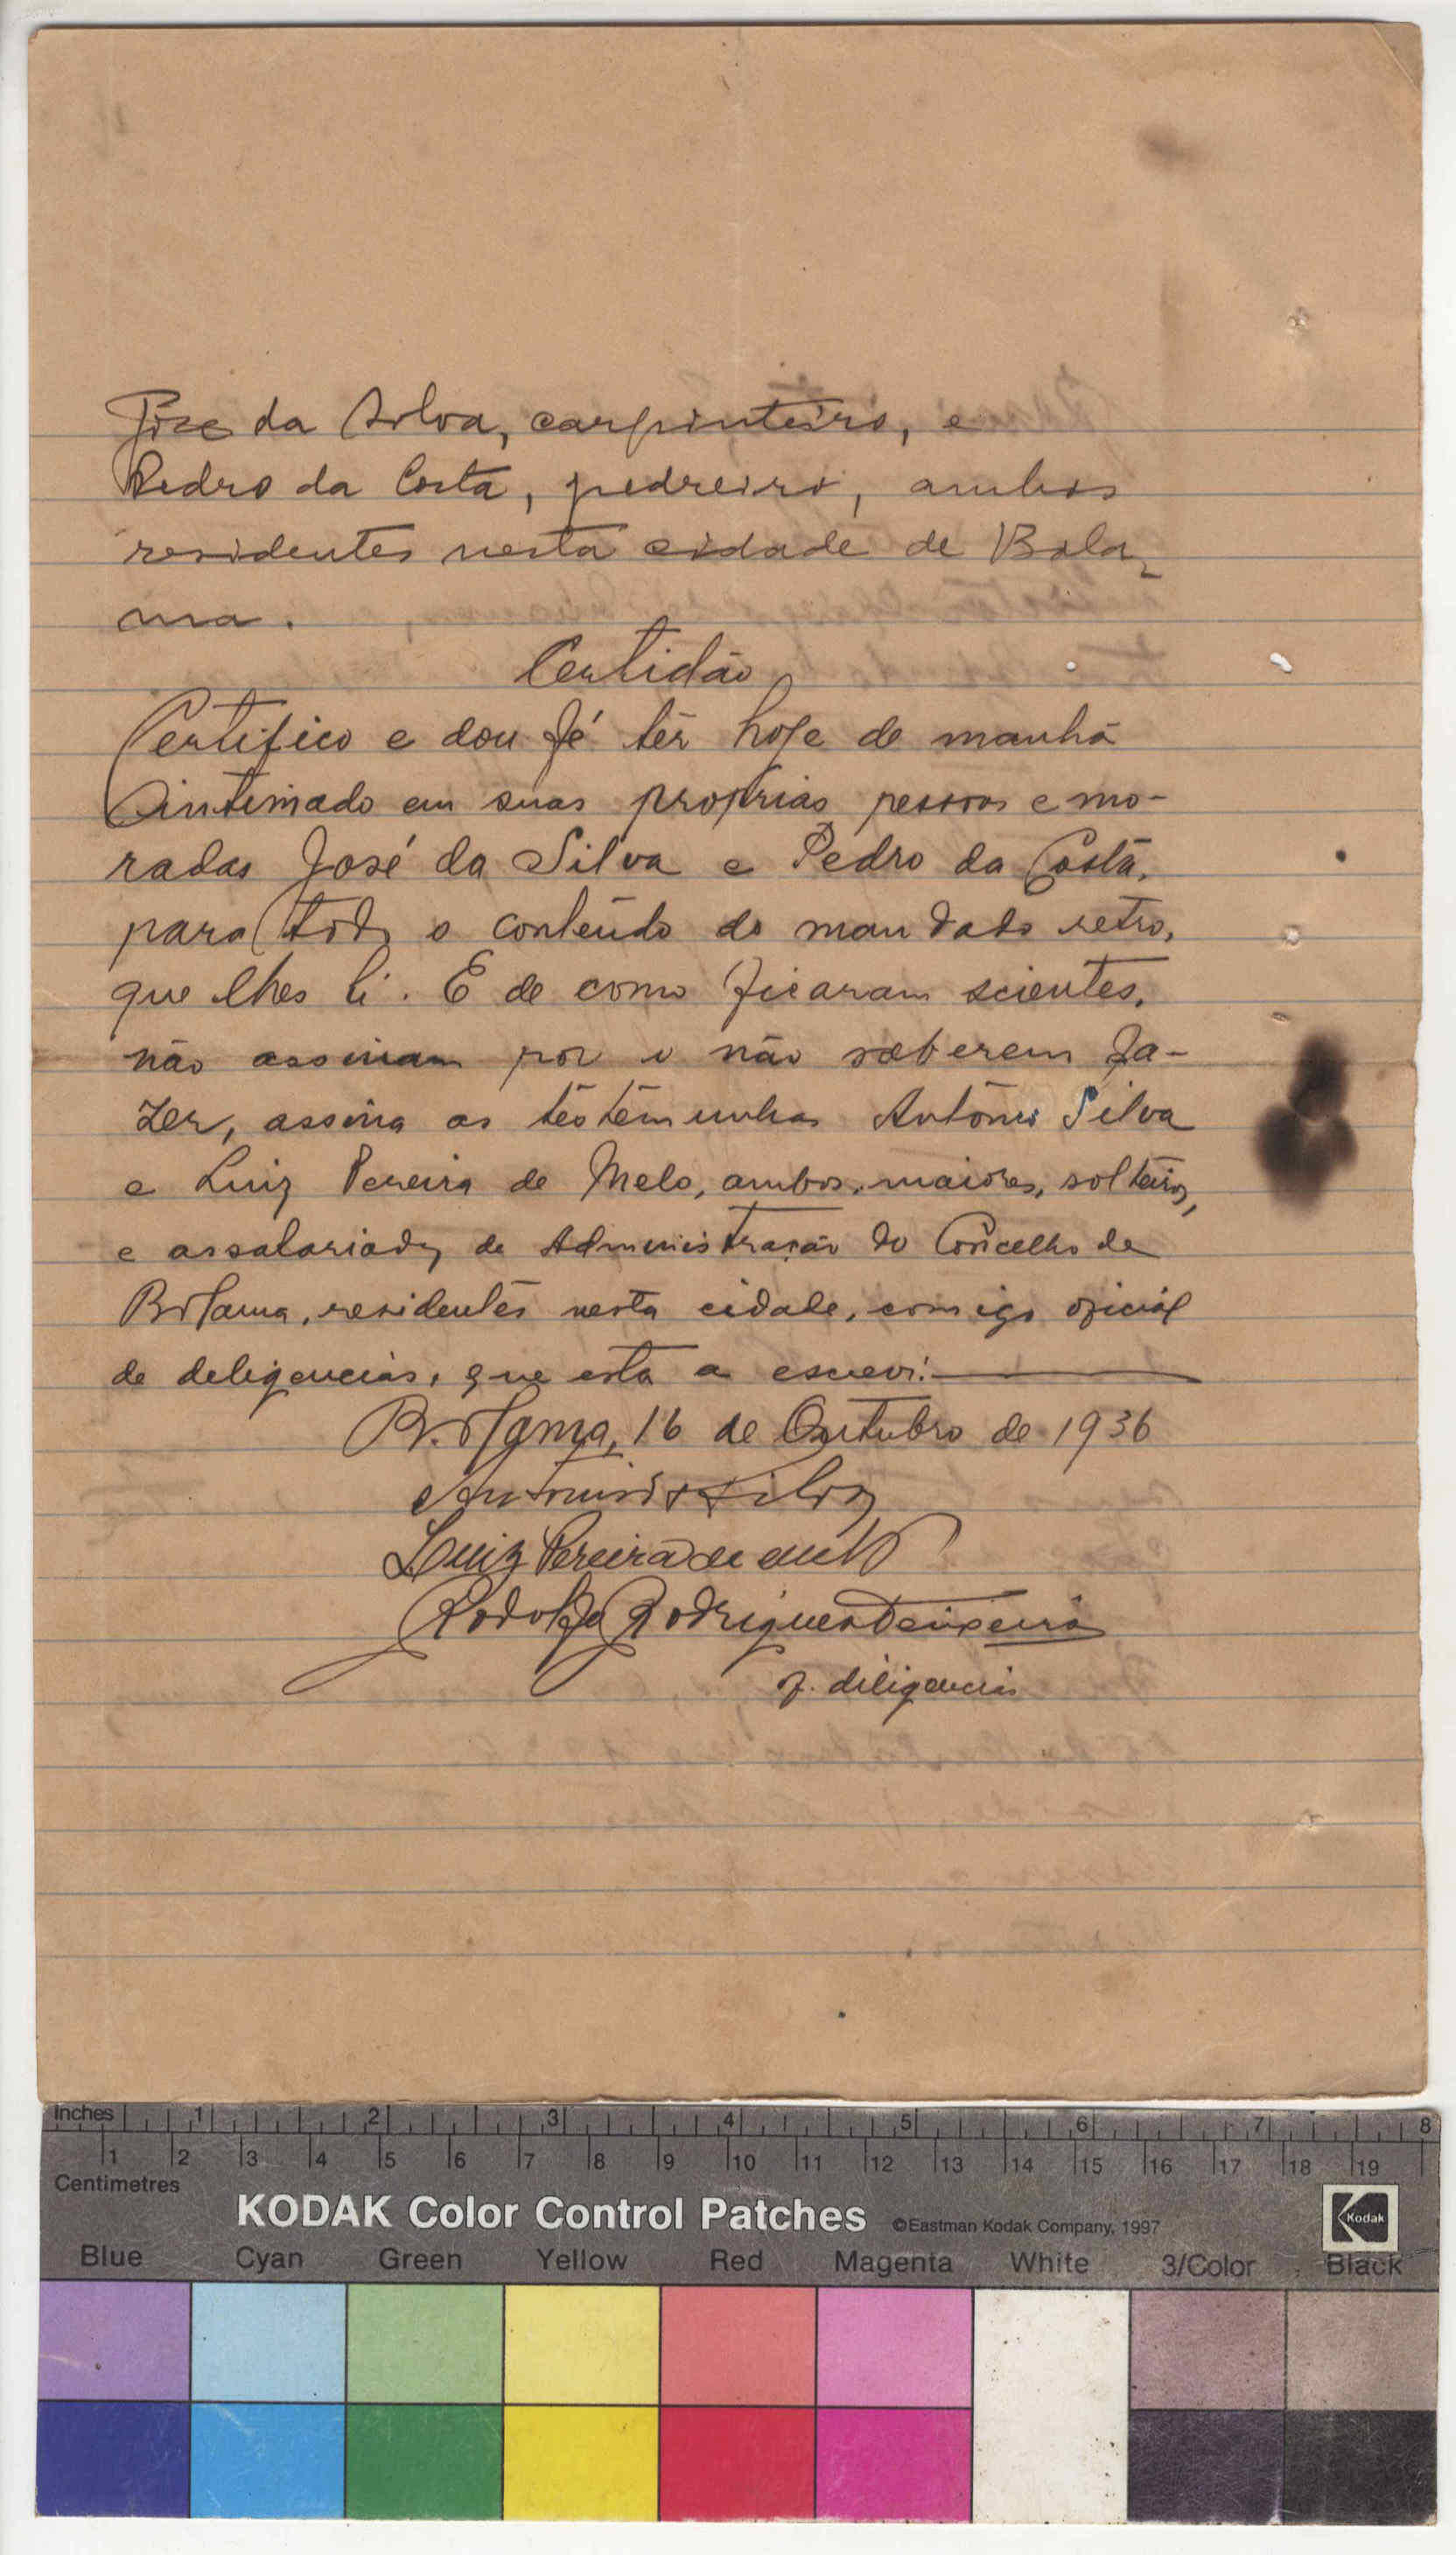 José da Silva, carpinteiro, e
Pedro da Costa, pedreiro, ambos
residentes nesta cidade de Bola-
ma.
Certidão
Certifico e dou fé têr hoje de manhã
intimado em suas proprias pessoas e mo-
radas José da Silva e Pedro da Costa,
para todo o conteúdo do mandado retro,
que lhes li. E de como ficaram scientes,
não assinam por o não saberem fa-
zer, assina as testemunhas António Silva
e Luiz Pereira de Melo, ambos, maiores, solteiros,
e assalariados da Administração do Concelho de
Bolama, residentes nesta cidade, comigo oficial
de deligencias, que esta a escrevi.
Bolama, 16 de Outubro de 1936
António Silva
Luiz Pereira de Melo
Rodolfo Rodrigues Teixeira
of. diligencias
Inches 1 2 3 4 5 6 7 8
1 2 3 4 5 6 7 8 9 10 11 12 13 14 15 16 17 18 19
Centimetres
KODAK Color Control Patches ©Eastman Kodak Company, 1997 Kodak
Blue Cyan Green Yellow Red Magenta White 3/Color Black